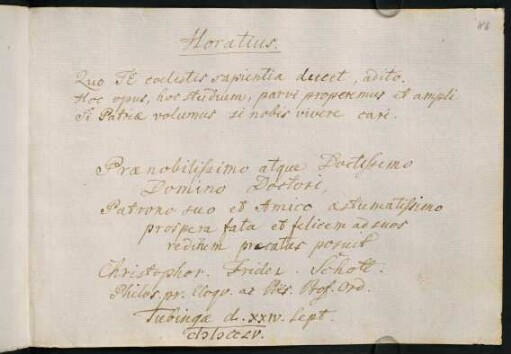 Horatius.
Quo TE coelestis sapientia ducet, adito.
Hoc opus, hoc studium, parvi properemus et ampli
Si Patriæ volumus si nobis vivere cari.
Prænobilissimo atque Doctissimo
Domino Doctori,
Patrono suo et Amico æstumatissimo
prospera fata et felicem ad suos
reditum precatus posuit
Christophor. Frider. Schott.
Philos. pr. Eloqu. ac Poës. Prof. Ord.
Tubingæ d. XXIV. Sept.